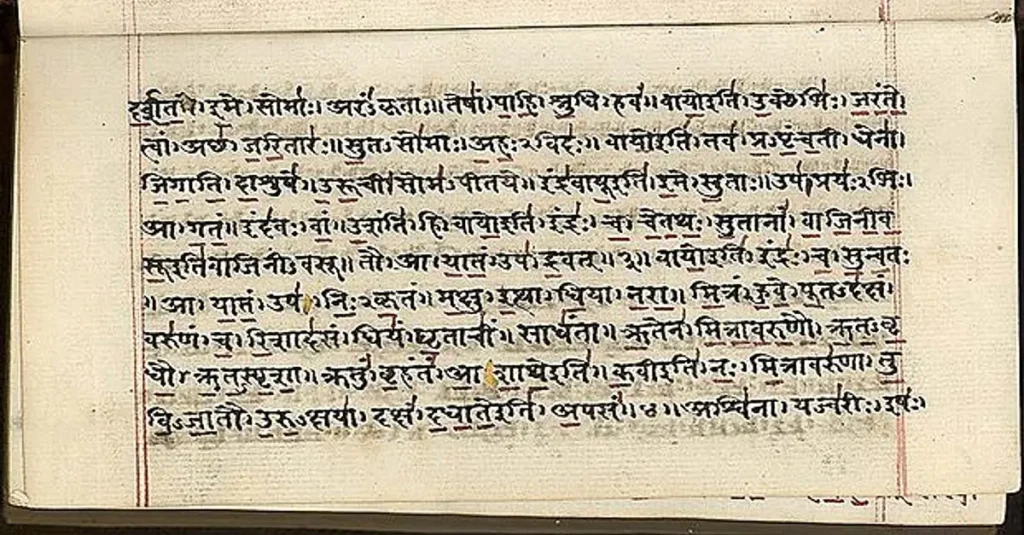 दर्शत॒। इ॒मे। सोमाः॑। अरं॑ऽकृताः॥ तेषां॑। पा॒हि॒। श्रु॒धि। हवं॑॥ वायो॒इति॑। उ॒क्थेभिः॑। ज॒रं॒ते॒
त्वां। अच्छ॑। ज॒रि॒तारः॑॥ सु॒तऽसो॑माः। अ॒हः॒ऽविदः॑॥ वायो॒इति॑। तव॑। प्र॒ऽपृं॒च॒ती। धेना॑।
जि॒गा॒ति॒। दा॒शुषे॑॥ उ॒रू॒ची। सोम॑ऽपीतये॥ इंद्र॑वायू॒इति॑। इ॒मे। सु॒ताः॥ उप॑। प्रयः॑ऽभिः।
आ। ग॒तं॒॥ इंद॑वः। वां॒। उ॒शंति॑। हि॥ वायो॒इति॑। इंद्रः॑। च॒। चे॒त॒थः॒। सु॒तानां॑। वा॒जि॒नी॒व॒
सू॒इति॑वाजिनीऽवसू॥ तौ। आ। या॒तं॒। उप॑। द्र॒वत्॥ ३॥ वायो॒इति॑। इंद्रः॑। च॒। सु॒न्व॒तः
। आ। या॒तं॒। उप॑। निः॒ऽकृ॒तं॥ म॒क्षु। इ॒त्था। धि॒या। न॒रा॒॥ मि॒त्रं। हु॒वे॒। पू॒तऽद॑क्षं।
वरु॑णं। च॒। रि॒शाद॑सं॥ धियं॑। घृ॒ताचीं॑॥ साधं॑ता॥ ऋ॒तेन॑। मि॒त्रा॒व॒रु॒णौ॒। ऋ॒त॒ऽवृ॒
धौ॒। ऋ॒त॒ऽस्पृ॒शा॒॥ क्रतुं॑। बृ॒हंतं॑। आ॒शा॒थे॒इति॑॥ क॒वीइति॑। नः॒। मि॒त्राव॒रु॑णा। तु॒
वि॒ऽजा॒तौ। उ॒रु॒ऽक्षया॑॥ दक्षं॑। द॒धा॒ते॒इति॑। अ॒पसं॑॥ ४॥ अश्वि॑ना। यज्व॑रीः। इषः॑।